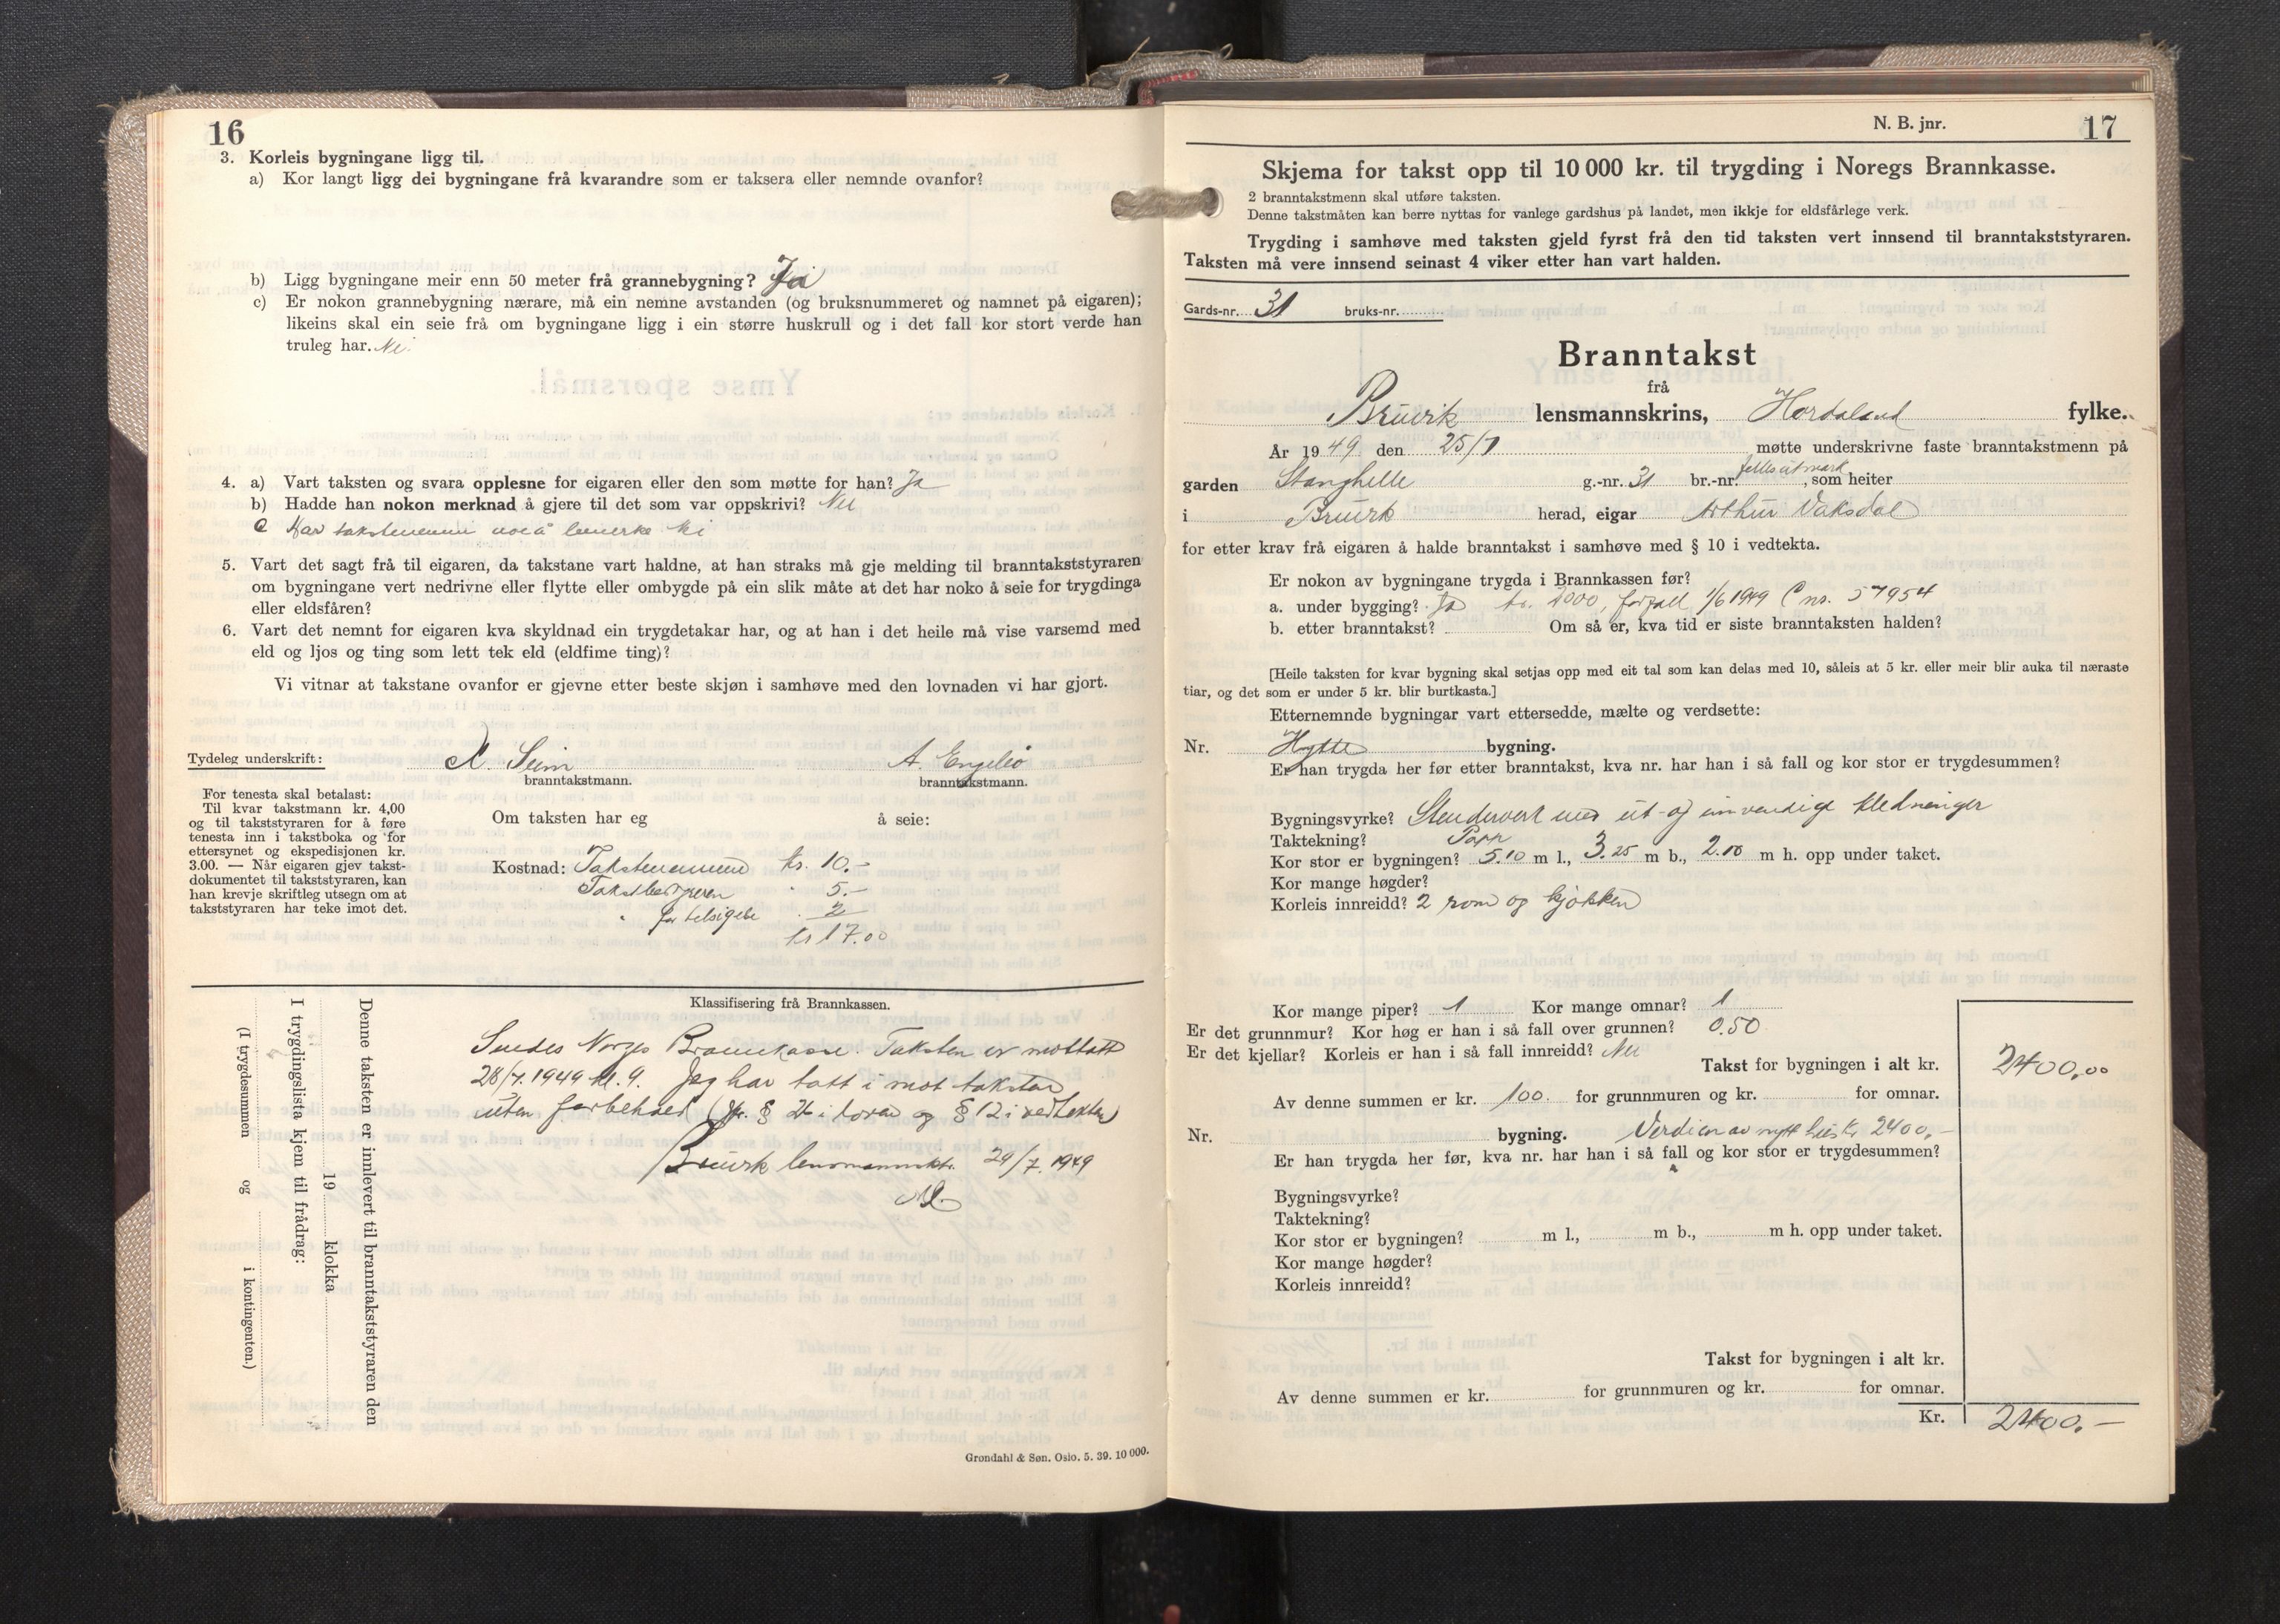 16
3. Korleis bygningane ligg til.
a) Kor langt ligg dei bygningane frå kvarandre som er taksera eller nemnde ovanfor?
b) Ligg bygningane meir enn 50 meter frå grannebygning? Ja
c) Er nokon grannebygning nærare, må ein nemne avstanden (og bruksnummeret og namnet på eigaren);
likeins skal ein seie frå om bygningane ligg i ein større huskrull og i det fall kor stort verde han
truleg har. Nei
4. a) Vart taksten og svara opplesne for eigaren eller den som møtte for han? Ja
b) Hadde han nokon merknad å gjere til det som var oppskrivi? Nei
c Har takstmennene noe å bemerke Nei
5. Vart det sagt frå til eigaren, da takstane vart haldne, at han straks må gje melding til branntakststyraren
om bygningane vert nedrivne eller flytte eller ombygde på ein slik måte at det har noko å seie for trygdinga
eller eldsfåren?
6. Vart det nemnt for eigaren kva skyldnad ein trygdetakar har, og at han i det heile må vise varsemd med
eld og ljos og ting som lett tek eld (eldfime ting)?
Vi vitnar at takstane ovanfor er gjevne etter beste skjøn i samhøve med den lovnaden vi har gjort.
Tydeleg underskrift: Seim A.
branntakstmann. branntakstmann.
For tenesta skal betalast:
Til kvar takstmann kr. 4,00
og til takststyraren for å føre
tenesta inn i takstboka og for
ettersynet og ekspedisjonen kr.
3.00. — Når eigaren gjev takst-
dokumentet til takststyraren, kan
han krevje skriftleg utsegn om at
takststyraren har teke imot det.
Om taksten har eg å seie:
Kostnad: Takstmennene kr. 10.-
Takstbestyreren " 5.-
" for tilsigelse " 2
kr 17.00
Klassifisering frå Brannkassen.
Sendes Norges Brannkasse. Taksten er mottatt
28/7. 1949 kl. 9. Jeg har tatt i mot taksten
uten forbehold (jfr. § 26 i loven og § 12 i vedtektene)
Bruvik lensmannsktr. 29/7. 1949
Denne taksten er innlevert til branntakststyraren den
19 klokka
I trygdingslista kjem til frådrag:
(I trygdesummen og i kontingenten.)
Grøndahl & Søn. Oslo. 5. 39. 10 000.
N. B. jnr. 17
Skjema for takst opp til 10 000 kr. til trygding i Noregs Brannkasse.
2 branntakstmenn skal utføre taksten.
Denne takstmåten kan berre nyttas for vanlege gardshus på landet, men ikkje for eldsfårlege verk.
Trygding i samhøve med taksten gjeld fyrst frå den tid taksten vert innsend til branntakststyraren.
Taksten må vere innsend seinast 4 viker etter han vart halden.
Gards-nr. 31 bruks-nr.
Branntakst
frå
Bruvik lensmannskrins, Hordaland fylke.
År 1949 den 25/7 møtte underskrivne faste branntakstmenn på
garden Stanghelle g.-nr. 31 br.-nr. felles utmark, som heiter
i Bruvik herad, eigar Arthur Vaksdal
for etter krav frå eigaren å halde branntakst i samhøve med § 10 i vedtekta.
Er nokon av bygningane trygda i Brannkassen før?
a. under bygging? Ja kr. 2000, forfall 1/6 1949 C nr. 57954
b. etter branntakst? Om så er, kva tid er siste branntaksten halden?
[Heile taksten for kvar bygning skal setjas opp med eit tal som kan delas med 10, såleis at 5 kr. eller meir blir auka til næraste
tiar, og det som er under 5 kr. blir burtkasta.]
Etternemnde bygningar vart ettersedde, mælte og verdsette:
Nr. Hytte bygning.
Er han trygda her før etter branntakst, kva nr. har han i så fall og kor stor er trygdesummen?
Bygningsvyrke? Stenderverk med ut- og innvendige kledninger
Taktekning? Papp
Kor stor er bygningen? 5.10 m l., 3.25 m b., 2.10 m h. opp under taket.
Kor mange høgder?
Korleis innreidd? 2 rom og kjøkken
Kor mange piper? 1 Kor mange omnar? 1
Er det grunnmur? Kor høg er han i så fall over grunnen? 0.50
Er det kjellar? Korleis er han i så fall innreidd? Nei
Takst for bygningen i alt kr. 2400,00
Av denne summen er kr. 100. for grunnmuren og kr. for omnar.
Nr. bygning. Verdien av nytt hus kr. 2400,-
Er han trygda her før, kva nr. har han i så fall og kor stor er trygdesummen?
Bygningsvyrke?
Taktekning?
Kor stor er bygningen? m l., m b., m h. opp under taket.
Kor mange høgder?
Korleis innreidd?
Takst for bygningen i alt kr.
Av denne summen er kr. for grunnmuren og kr. for omnar.
Kr. 2400.—